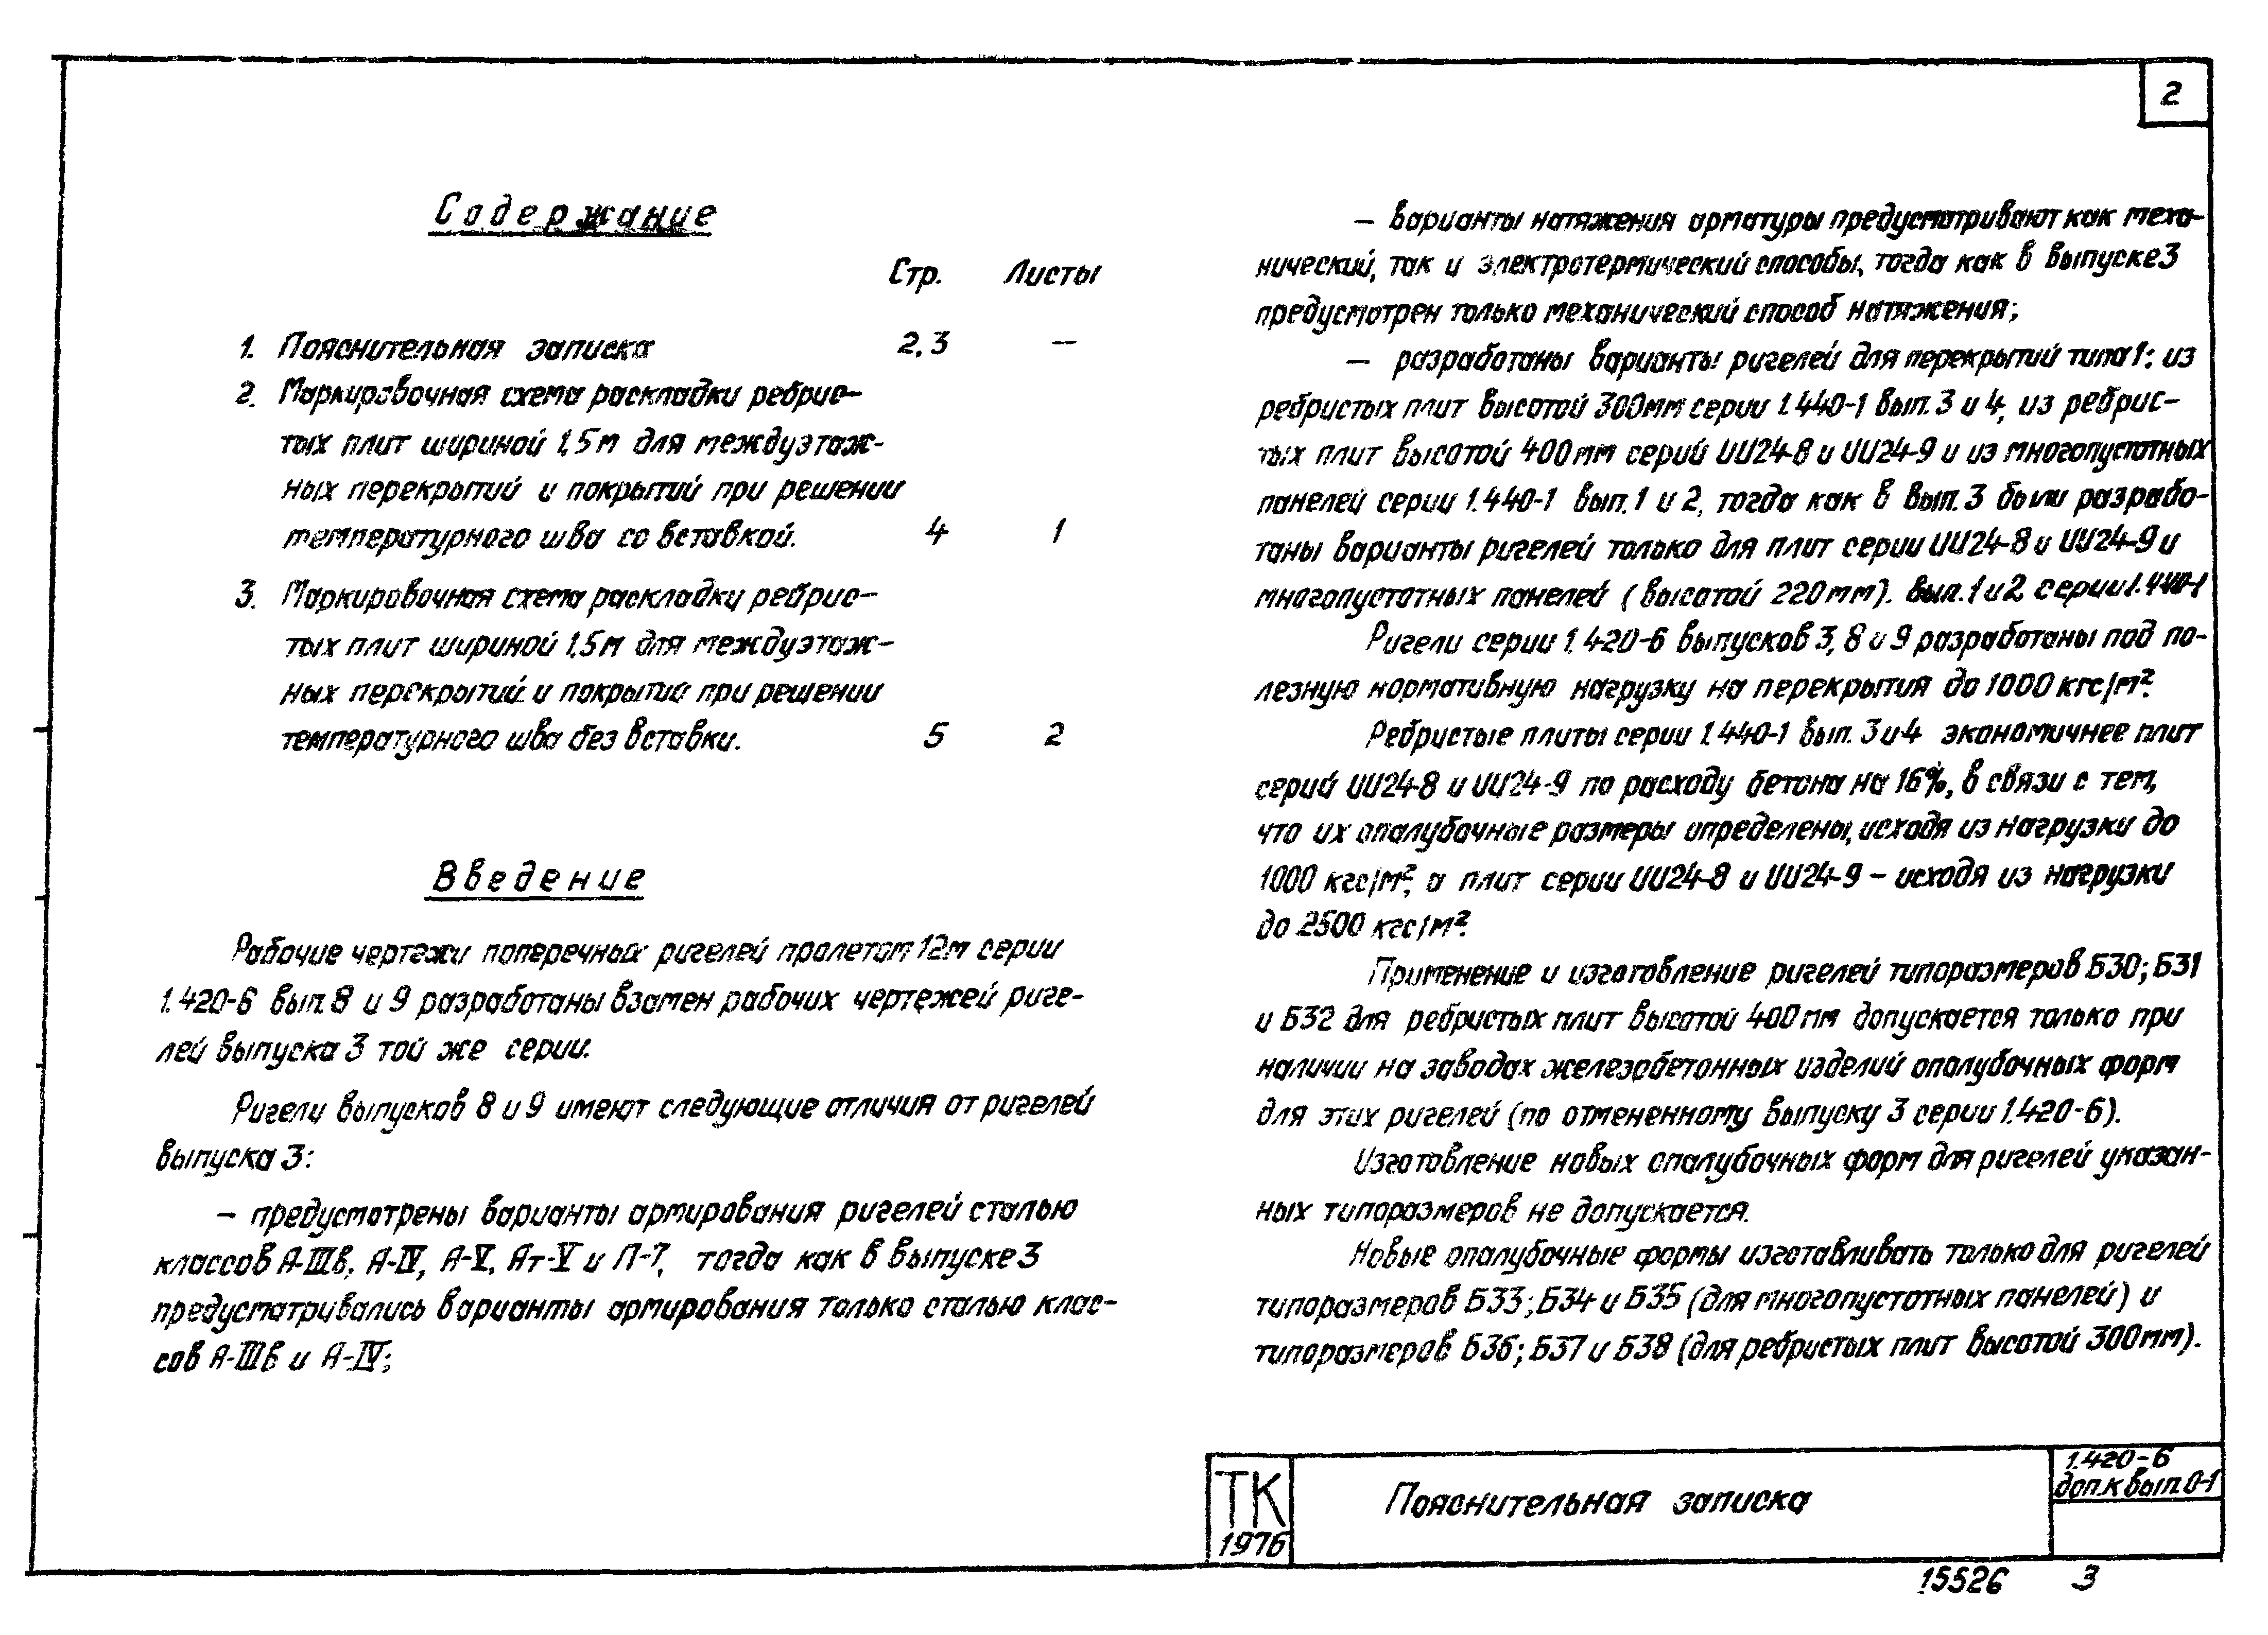 2
Содержание
Стр. Листы
1. Пояснительная записка 2,3 —
2. Маркировочная схема раскладки ребрис-
тых плит шириной 1,5м для междуэтаж-
ных перекрытий и покрытий при решении
температурного шва со вставкой. 4 1
3. Маркировочная схема раскладки ребрис-
тых плит шириной 1,5м для междуэтаж-
ных перекрытий и покрытий при решении
температурного шва без вставки. 5 2
Введение
Рабочие чертежи поперечных ригелей пролетом 12м серии
1.420-6 вып. 8 и 9 разработаны взамен рабочих чертежей риге-
лей выпуска 3 той же серии.
Ригели выпусков 8 и 9 имеют следующие отличия от ригелей
выпуска 3:
— предусмотрены варианты армирования ригелей сталью
классов А-IIIв, А-IV, А-V, Ат-V и П-7, тогда как в выпуске 3
предусматривались варианты армирования только сталью клас-
сов А-IIIв и А-IV;
— варианты натяжения арматуры предусматривают как меха-
нический, так и электротермический способы, тогда как в выпуске 3
предусмотрен только механический способ натяжения;
— разработаны варианты ригелей для перекрытий типа 1: из
ребристых плит высотой 300мм серии 1.440-1 вып. 3 и 4, из ребрис-
тых плит высотой 400мм серий ИИ24-8 и ИИ24-9 и из многопустотных
панелей серии 1.440-1 вып. 1 и 2, тогда как в вып. 3 были разрабо-
таны варианты ригелей только для плит серии ИИ24-8 и ИИ24-9 и
многопустотных панелей (высотой 220мм). вып. 1 и 2 серии 1.440-1
Ригели серии 1.420-6 выпусков 3, 8 и 9 разработаны под по-
лезную нормативную нагрузку на перекрытия до 1000 кгс/м².
Ребристые плиты серии 1.440-1 вып. 3 и 4 экономичнее плит
серий ИИ24-8 и ИИ24-9 по расходу бетона на 16%, в связи с тем,
что их опалубочные размеры определены, исходя из нагрузки до
1000 кгс/м², а плит серии ИИ24-8 и ИИ24-9 – исходя из нагрузки
до 2500 кгс/м².
Применение и изготовление ригелей типоразмеров Б30; Б31
и Б32 для ребристых плит высотой 400мм допускается только при
наличии на заводах железобетонных изделий опалубочных форм
для этих ригелей (по отмененному выпуску 3 серии 1.420-6).
Изготовление новых опалубочных форм для ригелей указан-
ных типоразмеров не допускается.
Новые опалубочные формы изготавливать только для ригелей
типоразмеров Б33; Б34 и Б35 (для многопустотных панелей) и
типоразмеров Б36; Б37 и Б38 (для ребристых плит высотой 300мм).
ТК
1976
Пояснительная записка
1.420-6
доп. к вып. 0-1
15526 3